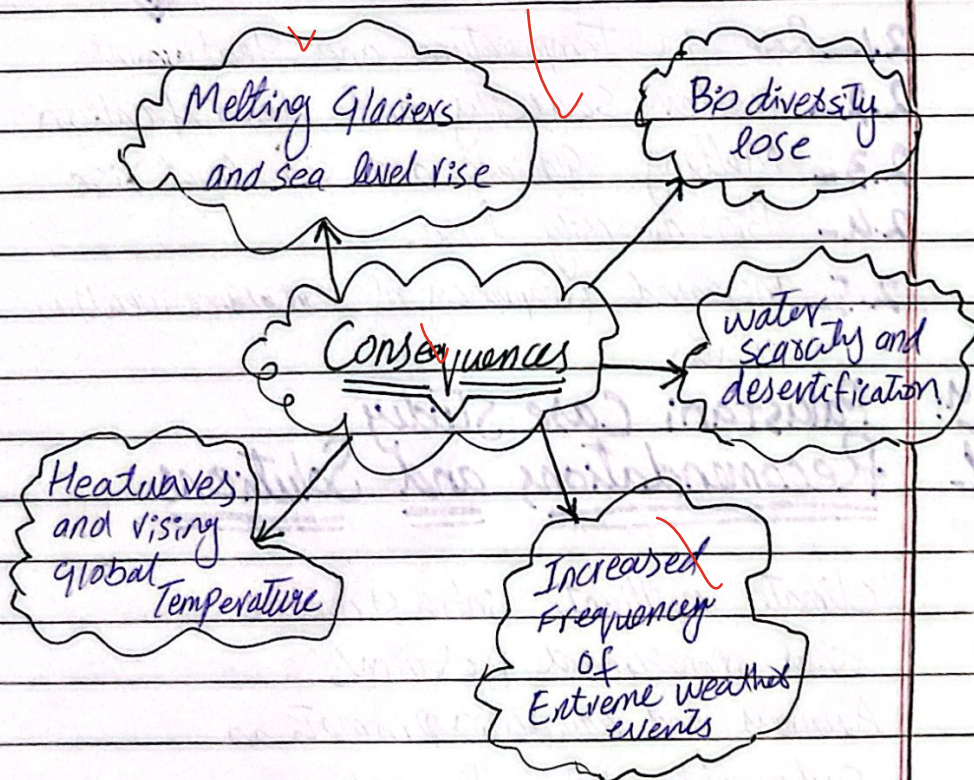 Melting Glaciers
and sea level rise
Bio diversity
lose
Consequences
water
scarcity and
desertification.
Heatwaves
and rising
global
Temperature
Increased
Frequency
of
Extreme weather
events
Case Study
and